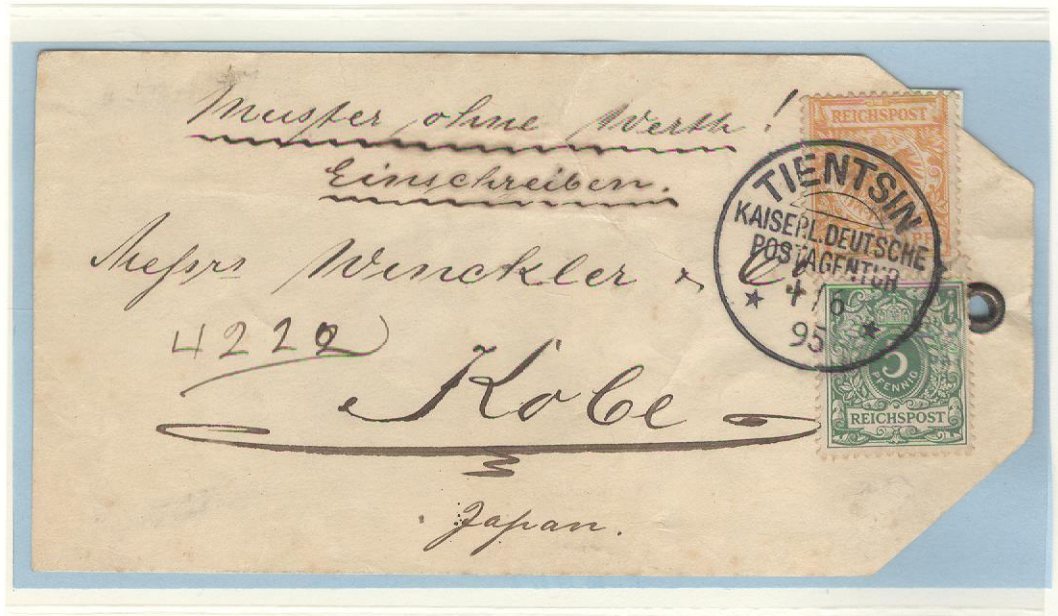 Muster ohne Werth!
Einschreiben.
Messrs Winckler & Co
4222
Kobe
Japan.
REICHSPOST
TIENTSIN
KAISERL. DEUTSCHE
POSTAGENTUR
16
95
5
PFENNIG
REICHSPOST